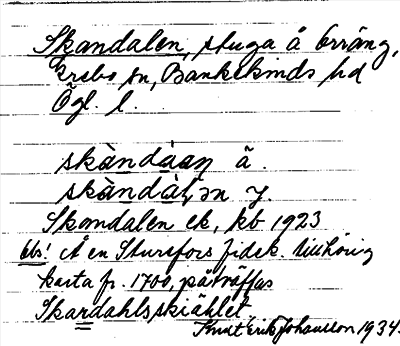 Skandalen, stuga å Orräng,
Grebo sn, Bankekinds hd
Ögl. l.
skàndáan ä.
skàndàl,ən y.
Skandalen ek, kb 1923
Obs! Å en Sturefors fidek. tillhörig
karta fr. 1700, påträffas
Skardahlsskiählet
Knut Erik Johansson 1934.